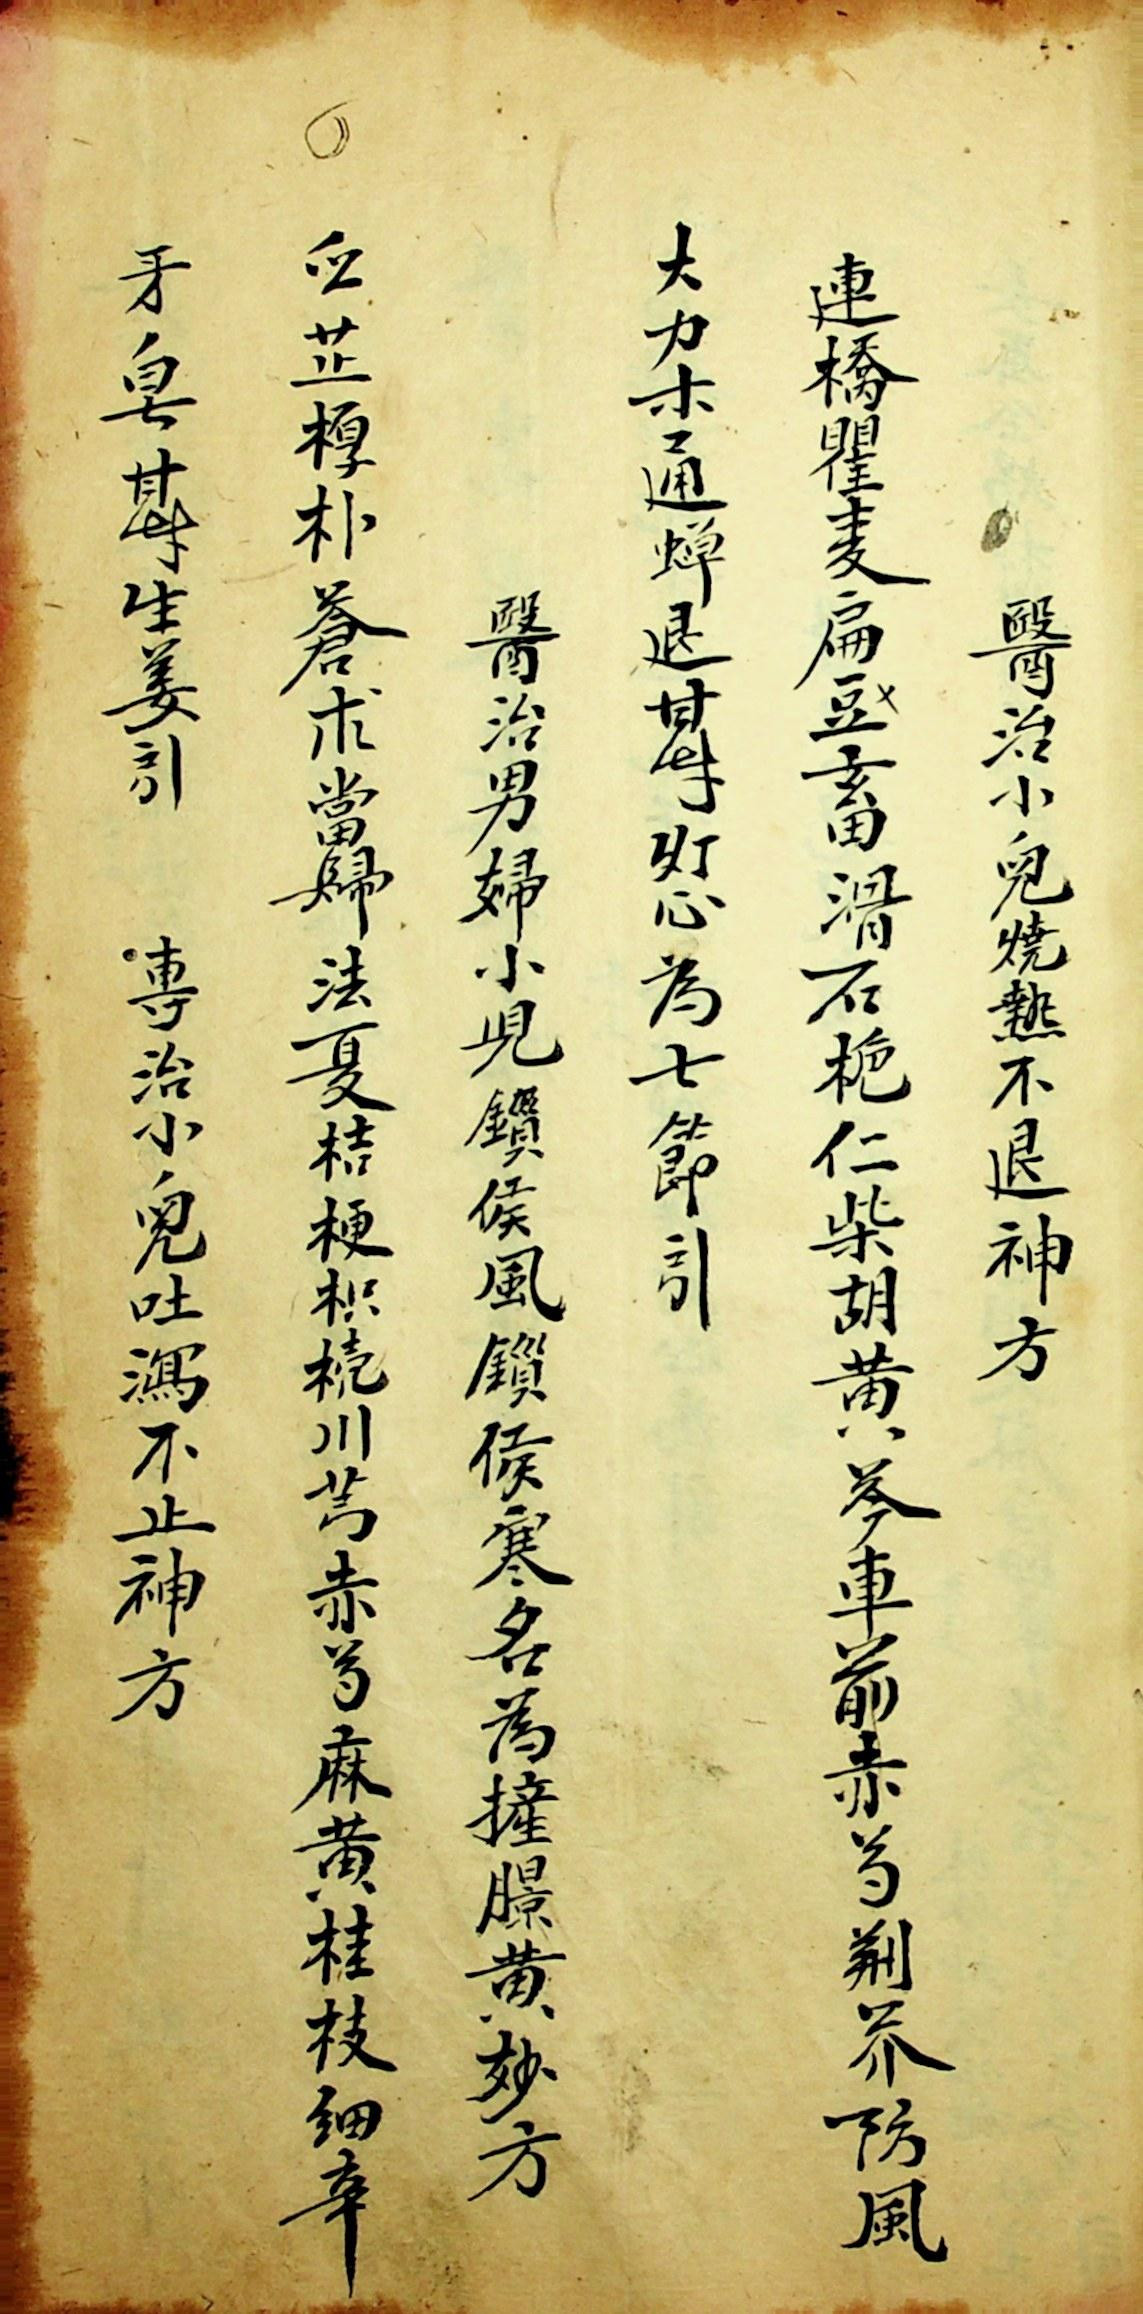 醫治小兒燒熱不退神方
連橋瞿麦扁豆畜滑石栀仁柴胡黄芩車前赤芍荆芥防風
大力木通蝉退甘草灯心為七節引
醫治男婦小児鎖侯風鎖侯寒名為撞腺黄妙方
芷椁朴蒼术當歸法夏桔梗枳梡川芎赤芍麻黄桂枝细辛
牙皂甘草生姜引 專治小兒吐瀉不止神方